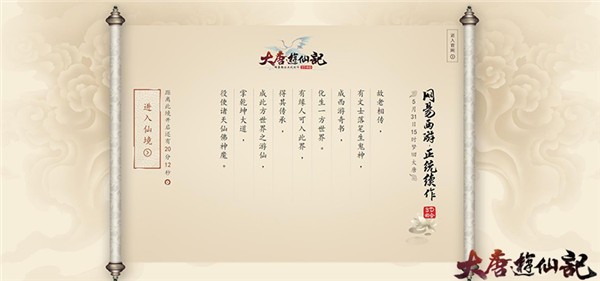 大唐·遊仙記
进入官网
网易西游 正统续作
5月31日15时梦回大唐
故老相传，
有文士落笔生鬼神，
成西游奇书，
化生一方世界。
有缘人可入此界，
得其传承，
成此方世界之游仙，
掌乾坤大道，
役使诸天仙佛神魔。
距离此境开启还有20分12秒
进入仙境
大唐·遊仙記